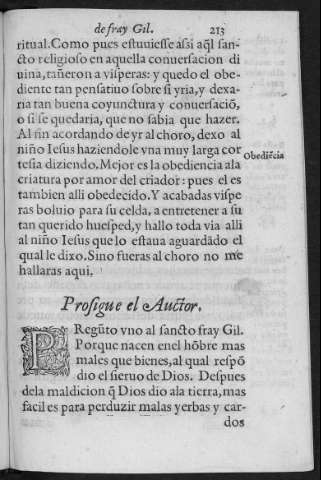 de fray Gil. 213
ritual. Como pues estuuiesse assi aq̃l san-
cto religioso en aquella conuersacion di
uina, tañeron a visperas: y quedo el obe-
diente tan pensatiuo sobre si yria, y dexa-
ria tan buena coyunctura y conuersaciõ,
o si se quedaria, que no sabia que hazer.
Al fin acordando de yr al choro, dexo al
niño Iesus haziendole vna muy larga cor
tesia diziendo. Mejor es la obediencia ala
Obediẽcia
criatura por amor del criador: pues el es
tambien alli obedecido. Y acabadas vispe
ras boluio para su celda, a entretener a su
tan querido huesped, y hallo toda via alli
al niño Iesus que lo estaua aguardãdo el
qual le dixo. Sino fueras al choro no me
hallaras aqui.
Prosigue el Auctor.
PRegũto vno al sancto fray Gil.
Porque nacen enel hõbre mas
males que bienes, al qual respõ
dio el sieruo de Dios. Despues
dela maldicion q̃ Dios dio ala tierra, mas
facil es para perduzir malas yerbas y car-
dos